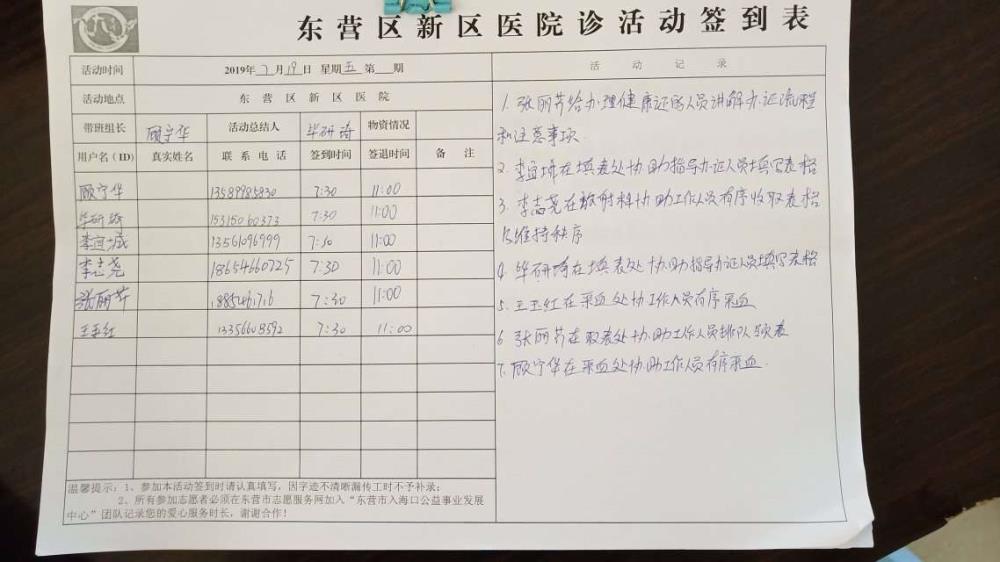 东营区新区医院诊活动签到表
活动时间 2019年7月19日 星期五 第 期
活动地点 东营区新区医院
带班组长 顾宁华 活动总结人 毕研琦 物资情况
用户名（ID） 真实姓名 联系电话 签到时间 签退时间 备注
顾宁华 13589985830 7:30 11:00
毕研琦 15315060373 7:30 11:00
13561096999 7:30 11:00
李志尧 18654660725 7:30 11:00
张丽芹 7:30 11:00
王玉红 13356608592 7:30 11:00
温馨提示：1、参加本活动签到时请认真填写，因字迹不清晰漏传工时不予补录；
2、所有参加志愿者必须在东营市志愿服务网加入“东营市入海口公益事业发展
中心”团队记录您的爱心服务时长，谢谢合作！
活动记录
1. 张丽芹给办理健康证的人员讲解办证流程
和注意事项.
2. 在填表处协助指导办证人员填写表格
3. 李志尧在放射科协助工作人员有序收取表格
及维持秩序
4. 毕研琦在填表处协助指导办证人员填写表格
5. 王玉红在采血处协工作人员有序采血
6 张丽芹在取表处协助工作人员排队领表
7. 顾宁华在采血处协助工作人员有序采血.